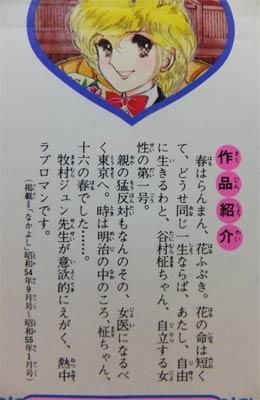 作品紹介
春はらんまん、花ふぶき。花の命は短く
て、どうせ同じ一生ならば、あたし、自由
に生きるわと、谷村柾ちゃん、自立する女
性の第一号。
親の猛反対もなんのその、女医になるべ
く東京へ。時は明治の中のころ、柾ちゃん、
十六の春でした……。
牧村ジュン先生が意欲的にえがく、熱中
ラブロマンです。
(掲載=「なかよし」昭和54年9月号~昭和55年1月号)